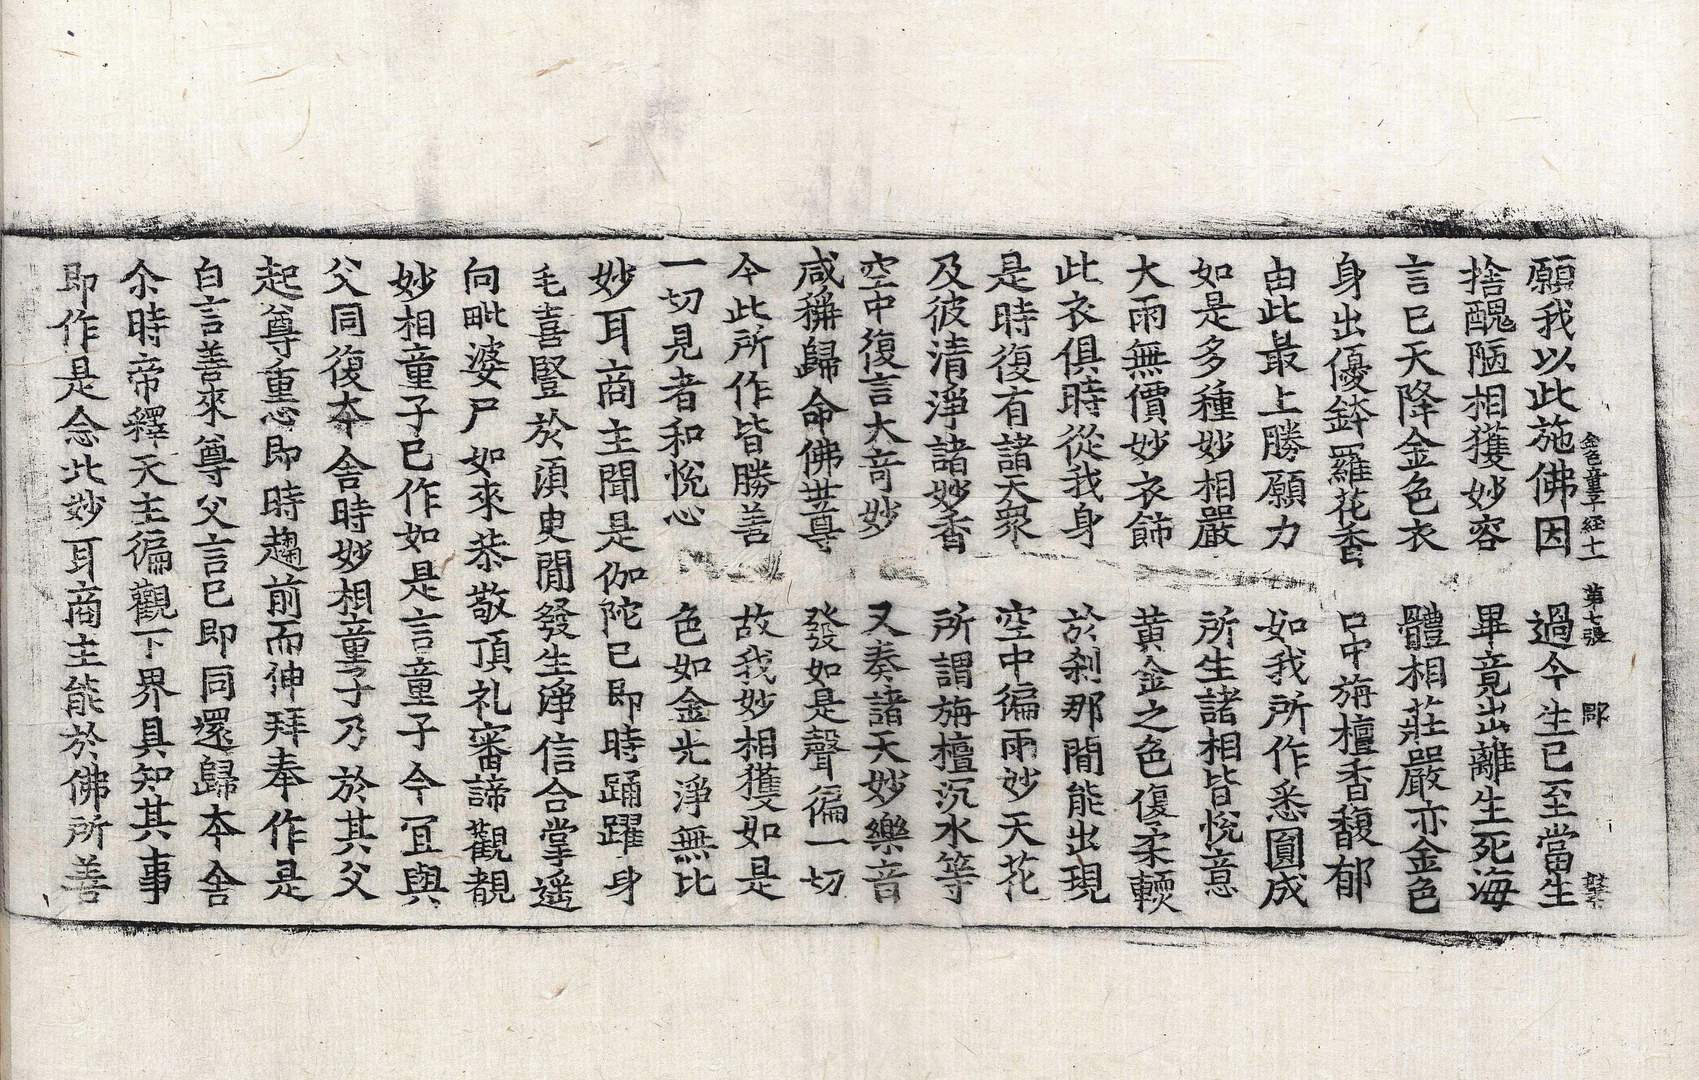 金色童子経十一 第七張 郡
願我以此施佛因 過今生已至當生
捨醜陋相獲妙容 畢竟出離生死海
言已天降金色衣 體相莊嚴亦金色
身出優鉢羅花香 口中旃檀香馥郁
由此最上勝願力 如我所作悉圓成
如是多種妙相嚴 所生諸相皆悅意
大雨無價妙衣飾 黃金之色復柔輭
此衣俱時從我身 於刹那間能出現
是時復有諸天衆 空中徧雨妙天花
及彼清淨諸妙香 所謂旃檀沉水等
空中復言大竒妙 又奏諸天妙樂音
咸稱歸命佛世尊 發如是聲徧一切
今此所作皆勝善 故我妙相獲如是
一切見者和悅心 色如金光淨無比
妙耳商主聞是伽陀已即時踊躍身
毛喜豎於須臾間發生淨信合掌遥
向毗婆尸如來恭敬頂礼審諦觀覩
妙相童子已作如是言童子今冝與
父同復本舍時妙相童子乃於其父
起尊重心即時趨前而伸拜奉作是
白言善來尊父言已即同還歸本舍
尒時帝釋天主徧觀下界具知其事
即作是念此妙耳商主能於佛所善